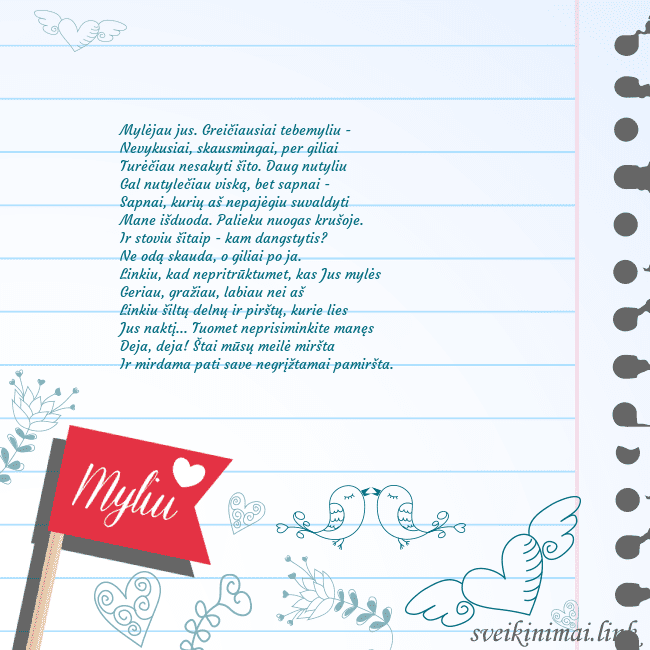 Mylėjau jus. Greičiausiai tebemyliu -
Nevykusiai, skausmingai, per giliai
Turėčiau nesakyti šito. Daug nutyliu
Gal nutylečiau viską, bet sapnai -
Sapnai, kurių aš nepajėgiu suvaldyti
Mane išduoda. Palieku nuogas krušoje.
Ir stoviu šitaip - kam dangstytis?
Ne odą skauda, o giliai po ja.
Linkiu, kad nepritrūktumet, kas Jus mylės
Geriau, gražiau, labiau nei aš
Linkiu šiltų delnų ir pirštų, kurie lies
Jus naktį... Tuomet neprisiminkite manęs
Deja, deja! Štai mūsų meilė miršta
Ir mirdama pati save negrįžtamai pamiršta.
Myliu
sveikinimai.link